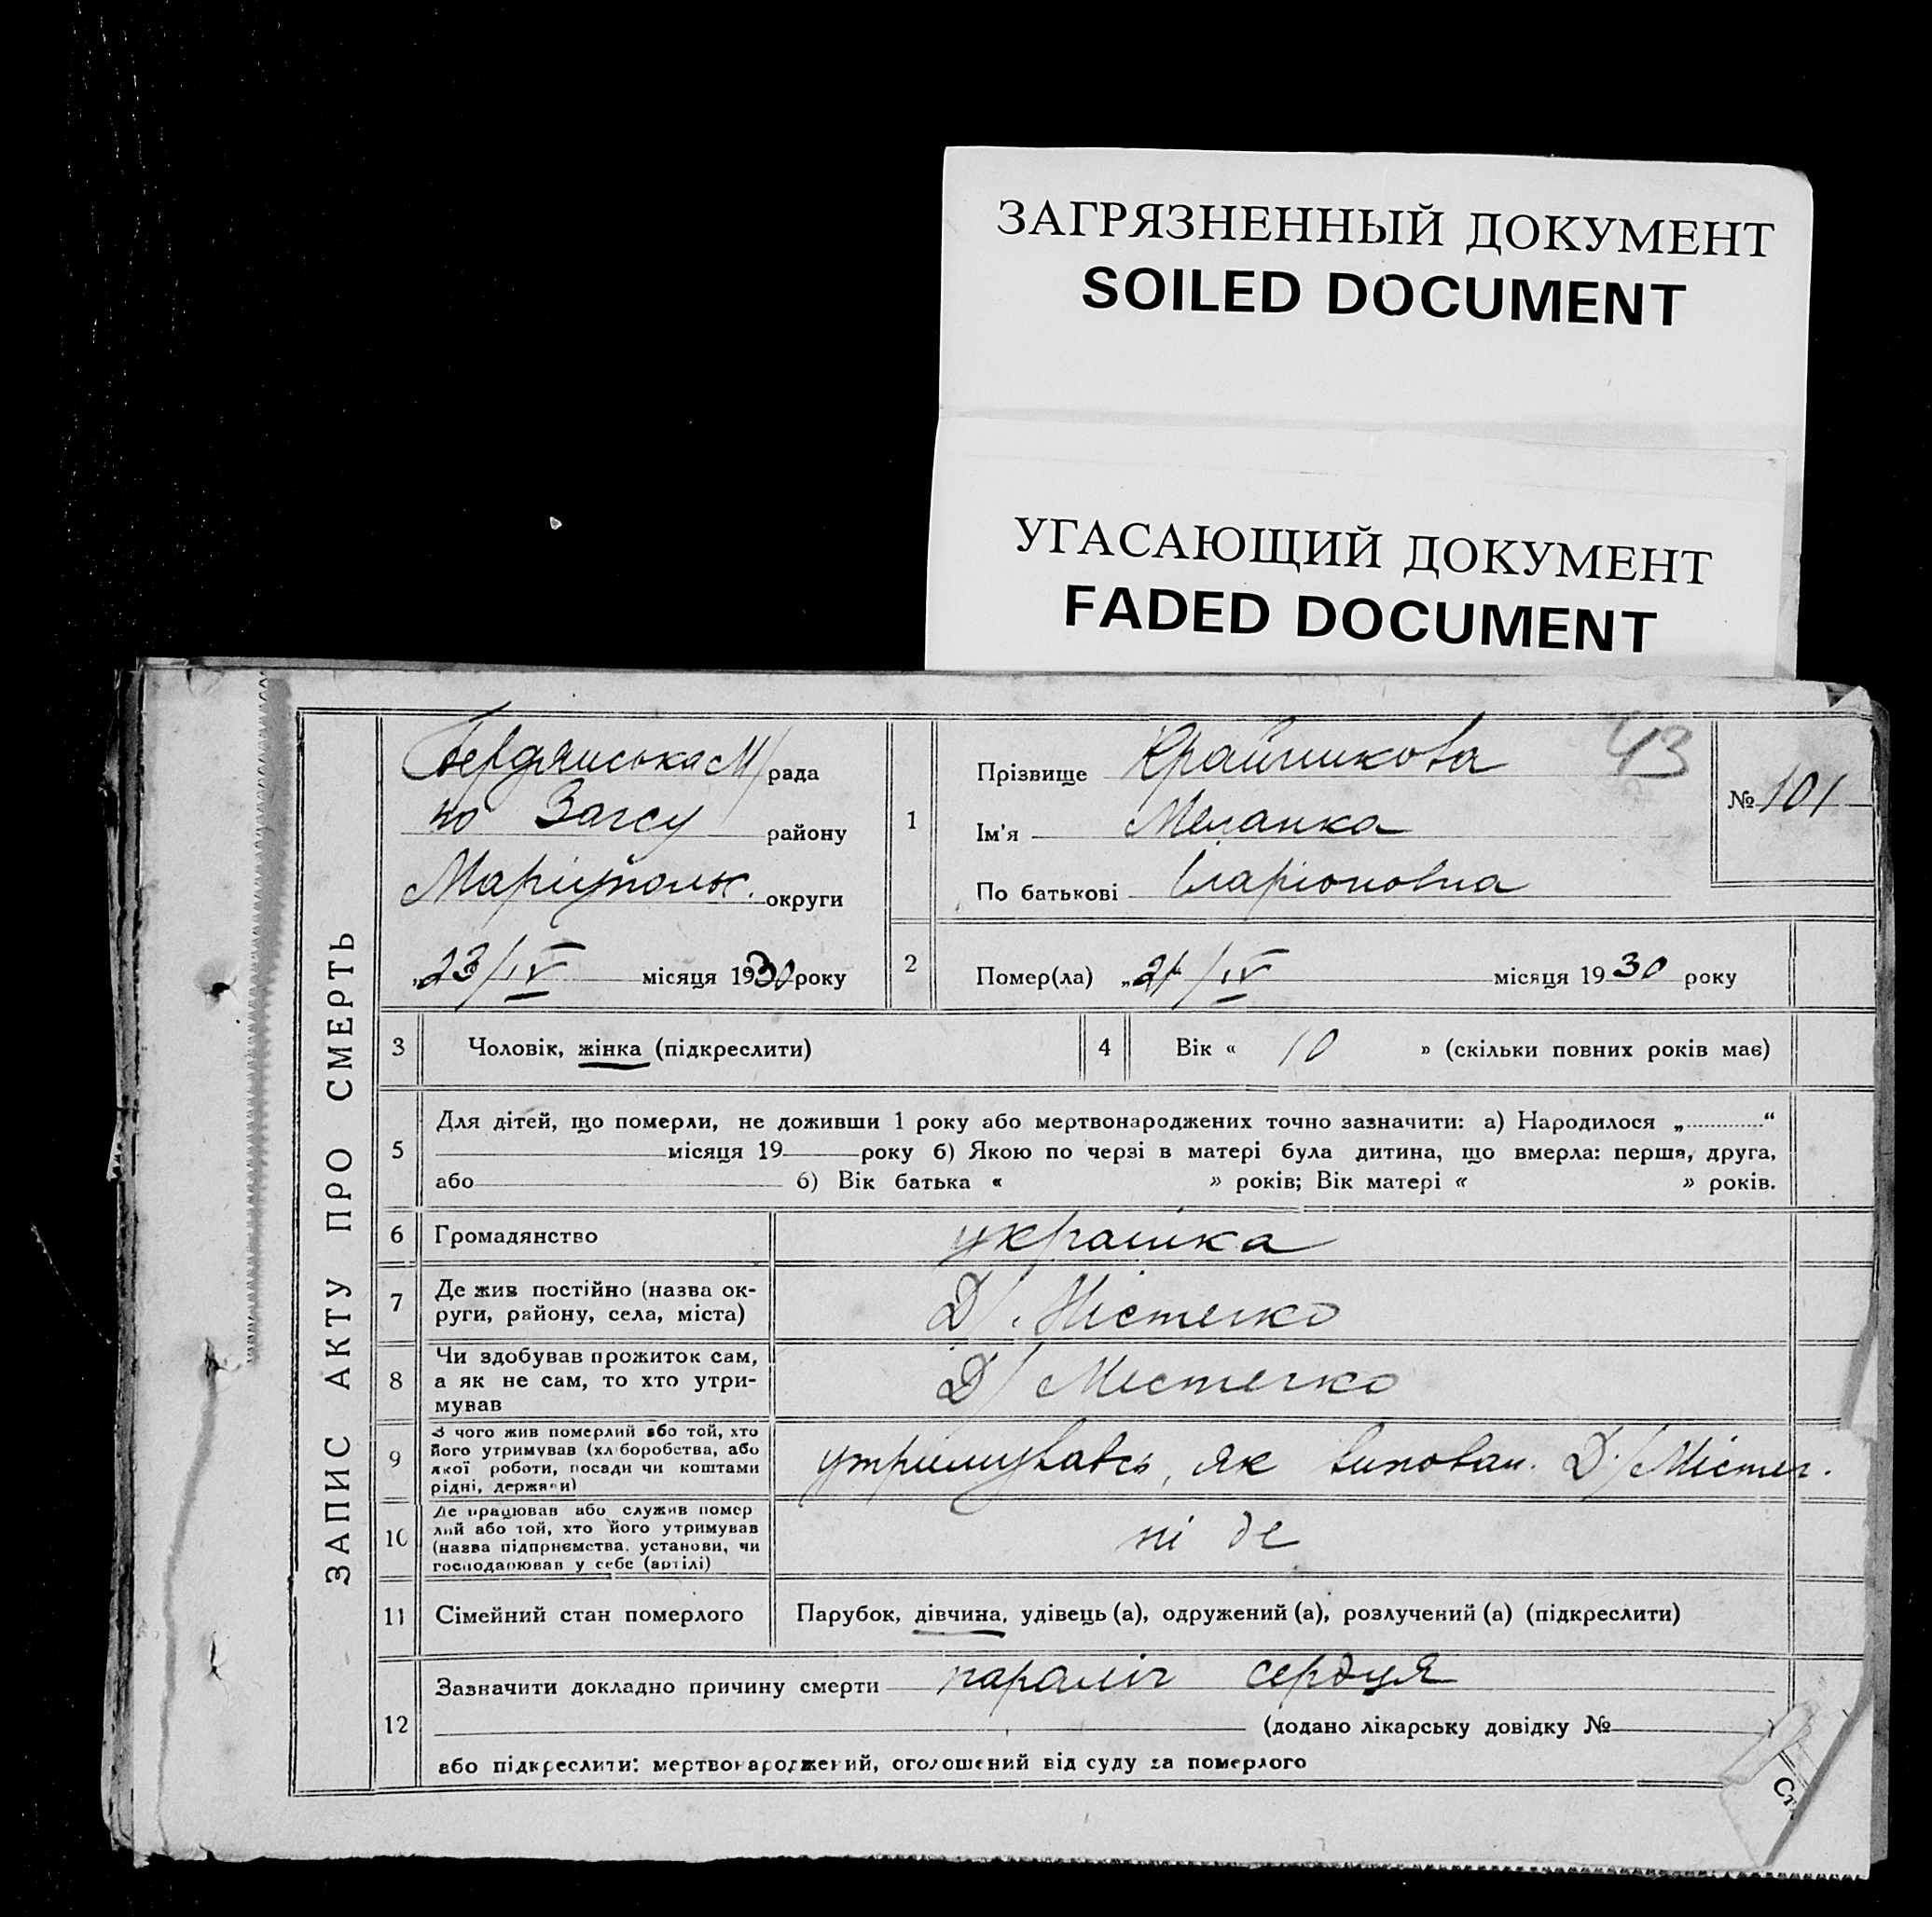 ЗАГРЯЗНЕННЫЙ ДОКУМЕНТ
SOILED DOCUMENT
УГАСАЮЩИЙ ДОКУМЕНТ
FADED DOCUMENT
ЗАПИС АКТУ ПРО СМЕРТЬ
Бердянська М/рада
по Загсу району
Маріупольк. округи
„23/IV місяця 1930 року
1
Прізвище Крайникова
43
Ім'я Меланка
По батькові Іларіоновна
№ 101
2
Помер(ла) „21/IV місяця 1930 року
3 Чоловік, жінка (підкреслити)
4 Вік « 10 » (скільки повних років має)
5
Для дітей, що померли, не доживши 1 року або мертвонароджених точно зазначити: а) Народилося „ “
місяця 19 року б) Якою по черзі в матері була дитина, що вмерла: перша, друга,
або б) Вік батька « » років; Вік матері « » років.
6 Громадянство українка
7
Де жив постійно (назва ок-
руги, району, села, міста)
Д/. Містечко
8
Чи здобував прожиток сам,
а як не сам, то хто утри-
мував
Д/ Містечко
9
З чого жив померлий або той, хто
його утримував (хліборобства, або
якої роботи, посади чи коштами
рідні, держави)
утримувавсь, як вихован. Д/Містеч.
10
Де працював або служив помер
лий або той, хто його утримував
(назва підприємства, установи, чи
господарював у себе (артілі)
ні де
11 Сімейний стан померлого Парубок, дівчина, удівець (а), одружений (а), розлучений (а) (підкреслити)
12
Зазначити докладно причину смерти параліч сердця
(додано лікарську довідку №
або підкреслити: мертвонароджений, оголошений від суду за померлого